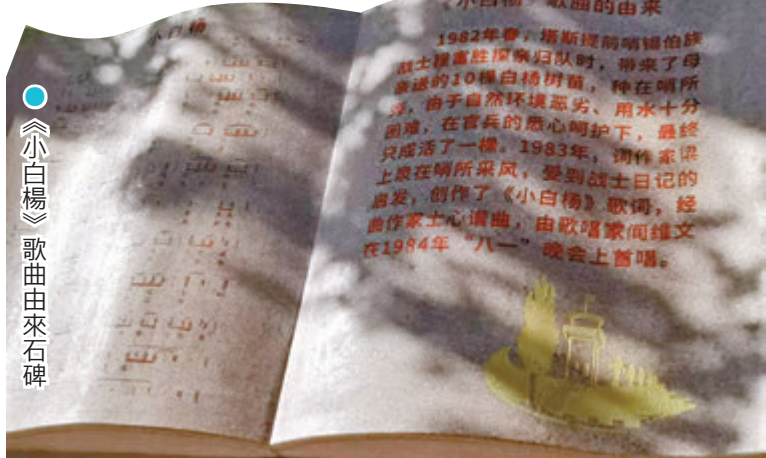 小白杨
《小白杨》歌曲的由来
1982年春,塔斯提前哨锡伯族
战士程富胜探亲归队时,带来了母
亲送的10棵白杨树苗,种在哨所
旁,由于自然环境恶劣、用水十分
困难,在官兵的悉心呵护下,最终
只成活了一棵。1983年,词作家梁
上泉在哨所采风,受到战士日记的
启发,创作了《小白杨》歌词,经
曲作家士心谱曲,由歌唱家阎维文
在1984年“八一”晚会上首唱。
《小白楊》歌曲由來石碑